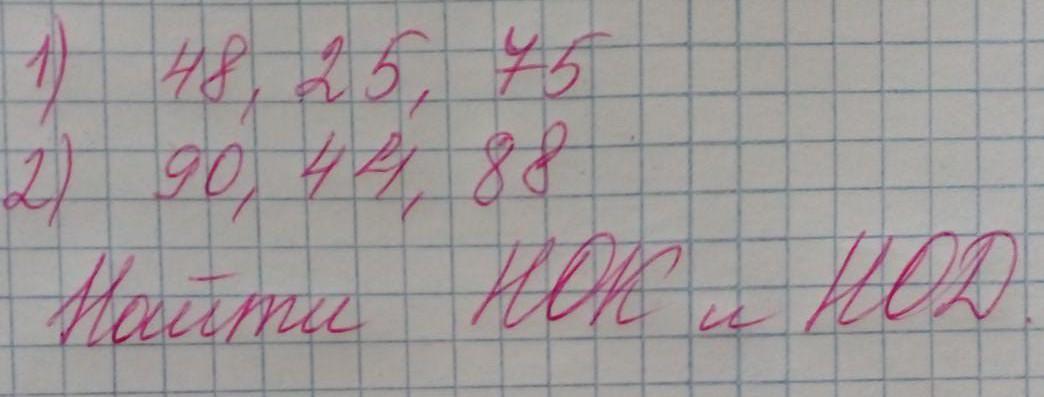 1) 48, 25, 75
2) 90, 44, 88
Найти НОК и НОД.